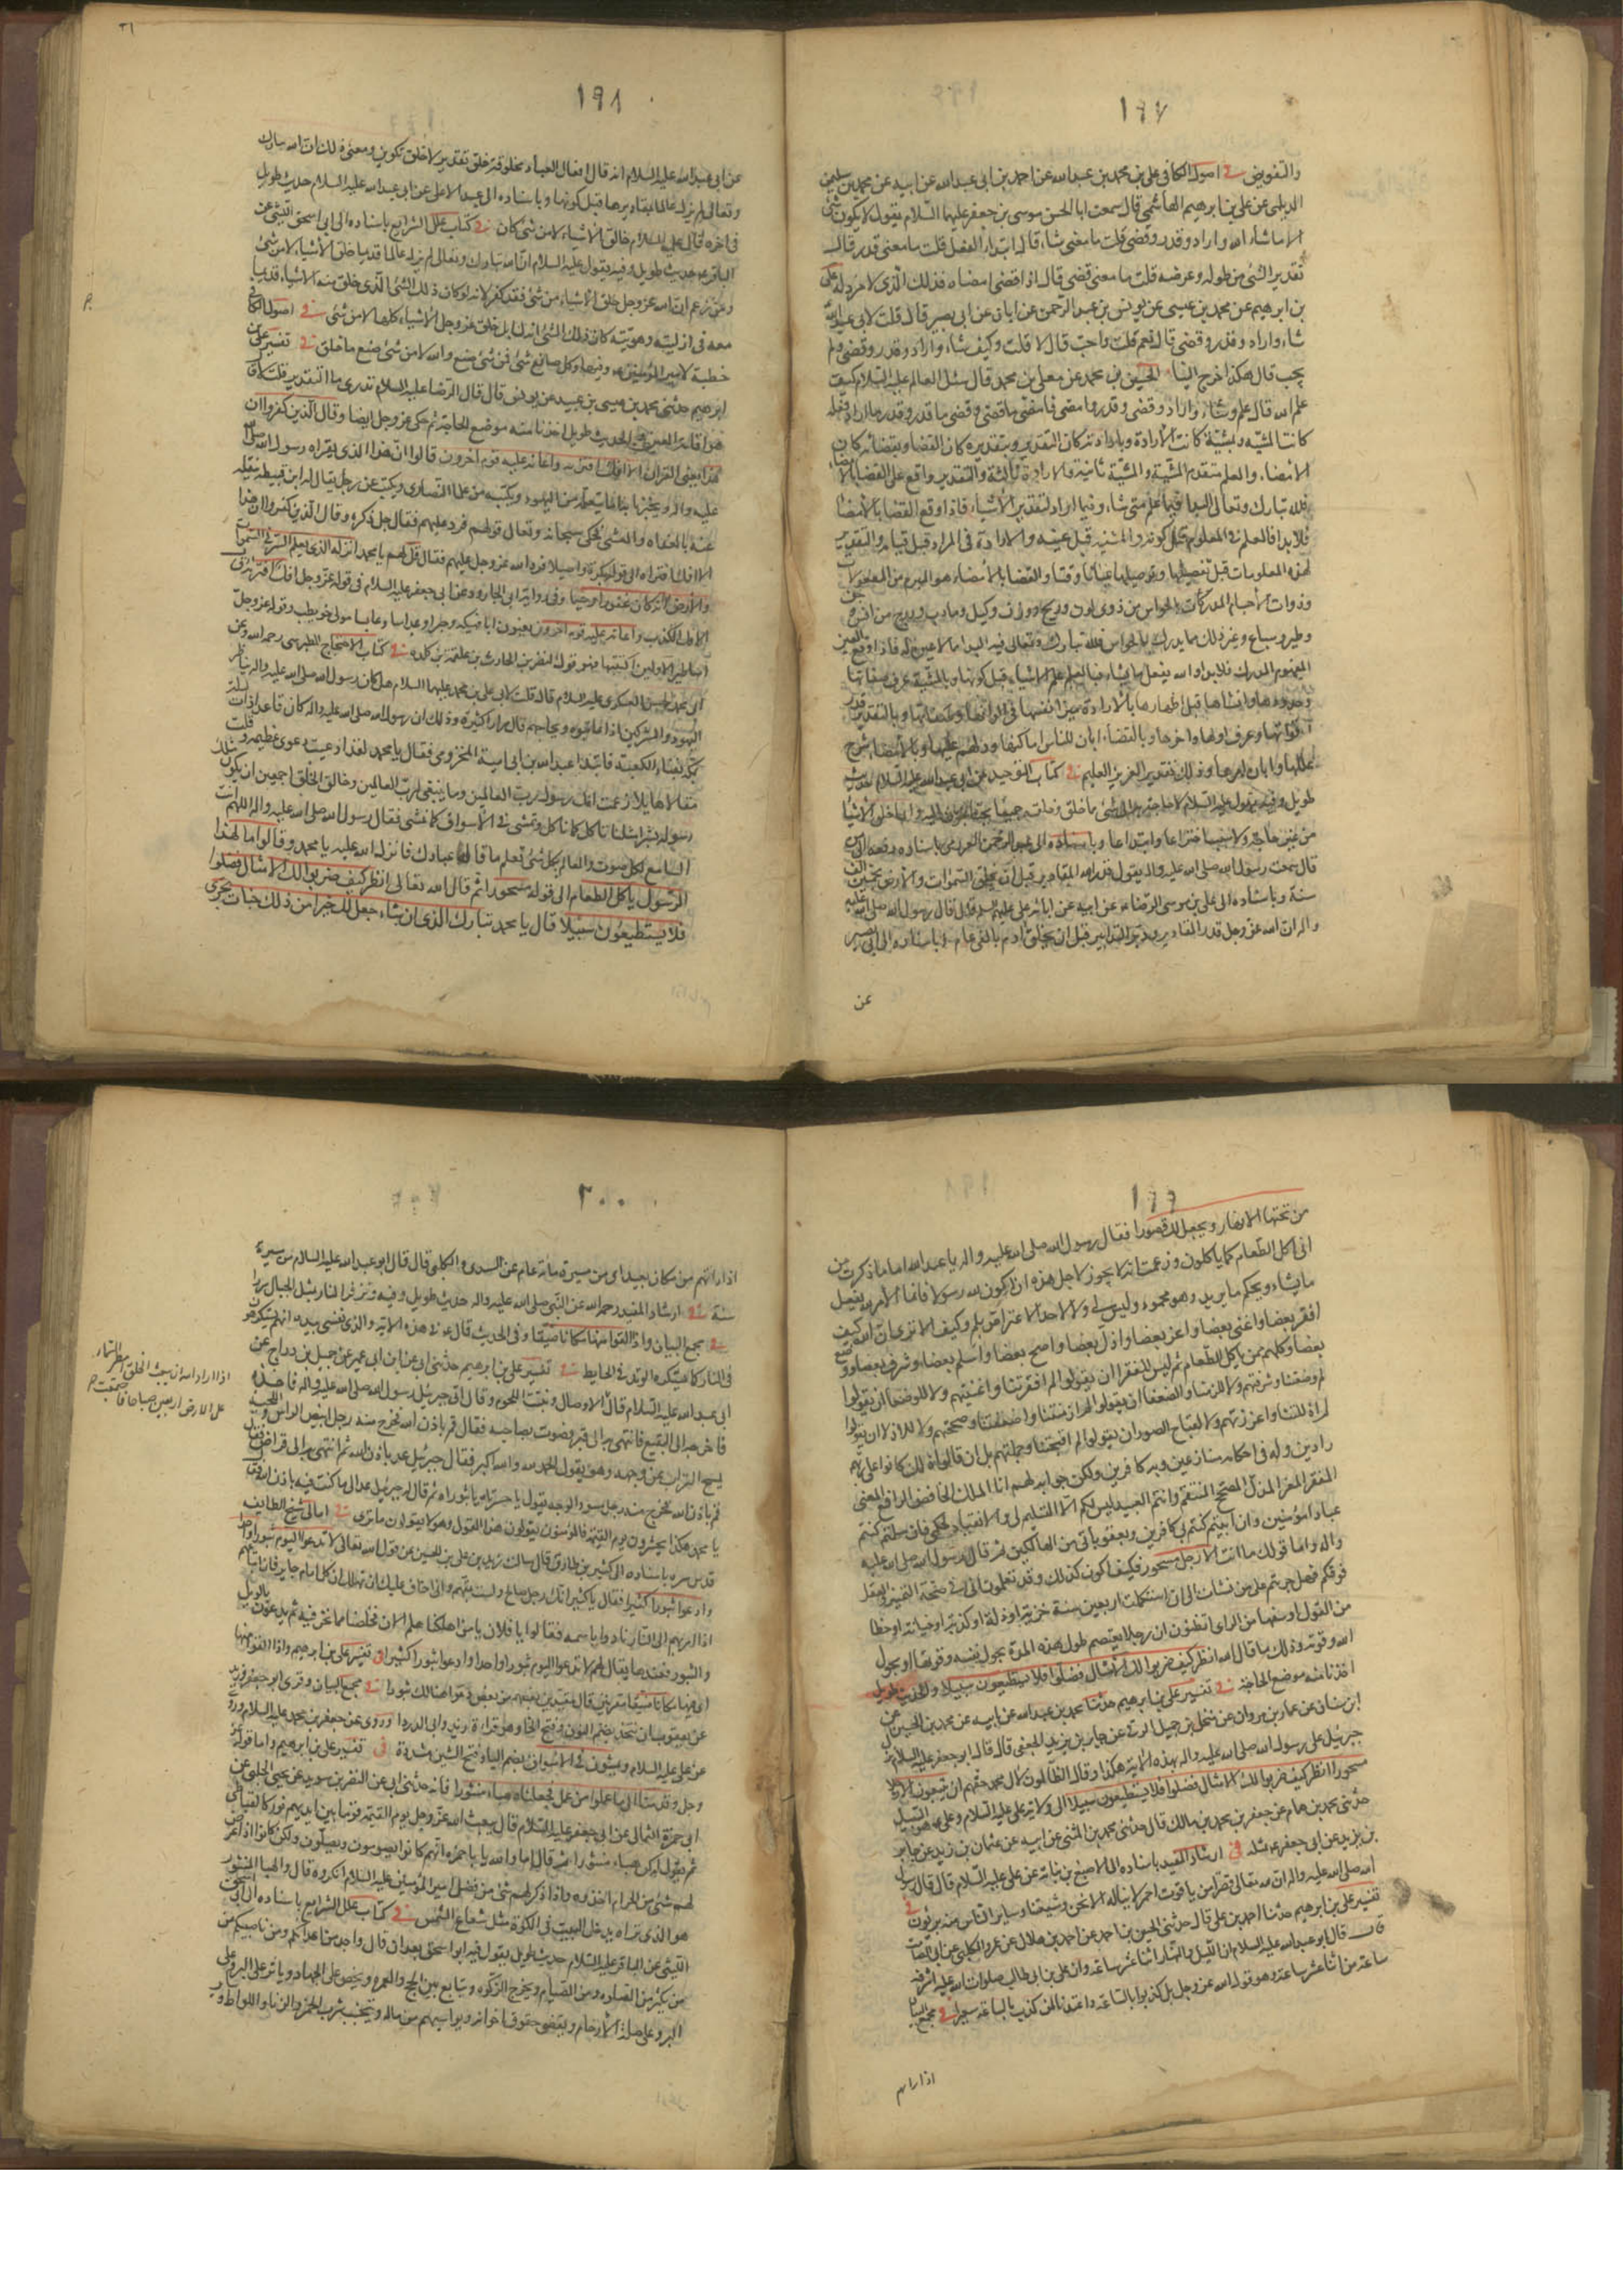 ١٩٧
والتفويض في اصول الكافى على بن محمد بن عبدالله عن احمد بن ابى عبدالله عن ابيه عن محمد بن سليمن
الديلمى عن على بن ابرهيم الهاشمى قال سمعت ابا الحسن موسى بن جعفر عليهما السلام يقول لا يكون شئ
الا ما شاء الله واراد وقدر وقضى قلت ما معنى شاء قال ابتداء الفعل قلت ما معنى قدر قال
تقدير الشئ من طوله وعرضه قلت ما معنى قضى قال اذا قضى امضاه فذلك الذى لا مرد له على
بن ابرهيم عن محمد بن عيسى عن يونس بن عبد الرحمن عن ابان عن ابى بصير قال قلت لابى عبدالله
شاء واراد وقدر وقضى قال نعم قلت واحب قال لا قلت وكيف شاء واراد وقدر وقضى ولم
يحب قال هكذا خرج الينا الحسين بن محمد عن معلى بن محمد قال سئل العالم عليه السلام كيف
علم الله قال علم وشاء واراد وقدر وقضى وامضى فامضى ما قضى وقضى ما قدر وقدر ما اراد فبعلمه
كانت المشية وبمشيته كانت الارادة وبارادته كان التقدير وبتقديره كان القضا وبقضائه كان
الامضاء والعلم متقدم المشية والمشية ثانية والارادة ثالثة والتقدير واقع على القضا بالامضاء
فلله تبارك وتعالى البدا فيما علم متى شاء وفيما اراد لتقدير الاشياء فاذا وقع القضا بالامضا
فلا بدا فالعلم فى المعلوم قبل كونه والمشية قبل عينه والارادة فى المراد قبل قيامه والتقدير
لهذه المعلومات قبل تفصيلها وتوصيلها عيانا ووقتا والقضا بالامضاء هو المبرم من المفعولات
وذوات الاجسام المدركات بالحواس من ذوى لون وريح ووزن وكيل وما دب ودرج من انس وجن
وطير وسباع وغير ذلك مما يدرك بالحواس فلله تبارك وتعالى فيه البدا مما لا عين له فاذا وقع العين
المفهوم المدرك فلا بدا والله يفعل ما يشاء فبالعلم علم الاشياء قبل كونها وبالمشية عرف صفاتها
وحدودها وانشاها قبل اظهارها وبالارادة ميز انفسها فى الوانها وصفاتها وبالتقدير قدر
اقواتها وعرف اولها واخرها وبالقضاء ابان للناس اماكنها ودلهم عليها وبالامضا شرح
عللها وابان امرها وذلك تقدير العزيز العليم في كتاب التوحيد عن ابى عبدالله عليه السلام حديث
طويل وفيه يقول عليه السلام
من غير حاجة ولا سبب اختراعا وابتداعا وباسناده الى
قال سمعت رسول الله صلى الله عليه واله يقول قدر الله المقادير قبل ان يخلق السموات والارض بخمسين الف
سنة وباسناده الى على بن موسى الرضا عن ابيه عن ابائه عن على عليهم السلم قال قال رسول الله صلى الله عليه
واله ان الله عز وجل قدر المقادير ودبر التدابير قبل ان يخلق ادم بالفى عام وباسناده الى
عن
١٩٨
عن ابى عبدالله عليه السلام انه قال افعال العباد مخلوقة خلق تقدير لا خلق تكوين ومعنى ذلك ان الله تبارك
وتعالى لم يزل عالما بمقاديرها قبل كونها وباسناده الى عبد الاعلى عن ابى عبدالله عليه السلام حديث طويل
فى اخره قال عليه السلام خالق الاشياء لا من شئ كان في كتاب علل الشرايع باسناده الى ابى اسحق الليثى عن
الباقر حديث طويل وفيه يقول عليه السلام ان الله تبارك وتعالى لم يزل عالما قديما خلق الاشياء لا من شئ
ومن زعم ان الله عز وجل خلق الاشياء من شئ فقد كفر لانه لو كان ذلك الشئ الذى خلق منه الاشياء قديما
معه فى ازليته وهويته كان ذلك الشئ ازليا بل خلق عز وجل الاشياء كلها لا من شئ في اصول الكافى
خطبة لامير المؤمنين وفيها وكل صانع شئ فمن شئ صنع والله لا من شئ صنع ما خلق في تفسير على بن
ابرهيم حدثنى محمد بن عيسى بن عبيد عن يونس قال قال الرضا عليه السلام تدرى ما التقدير قلت لا قال
هو اقامة العين الحديث طويل اخذنا منه موضع الحاجة ثم حكى عز وجل ايضا وقال الذين كفروا ان
هذا يعنى القرآن الا افك افتريه واعانه عليه قوم آخرون قالوا ان هذا الذى يقراه رسول الله صلى الله
عليه واله ويخبرنا به انما يتعلمه من اليهود ويكتبه من علما النصارى ويكتب عن رجل يقال له ابن قبيطة ينقله
عنه بالغداة والعشى فحكى سبحانه وتعالى قولهم فرد عليهم فقال جل ذكره وقال الذين كفروا ان هذا
الا افك افتراه الى قوله بكرة واصيلا فرد الله عز وجل عليهم فقال قل لهم يا محمد انزله الذى يعلم السر فى السموات
والارض انه كان غفورا رحيما وفى رواية ابى الجارود عن ابى جعفر عليه السلام فى قوله عز وجل افك افتراه
الافك الكذب واعانه عليه قوم اخرون يعنون ابا فكيهة وحبرا وعداسا وعابسا مولى حويطب وقوله عز وجل
اساطير الاولين اكتتبها فهو قول النضر بن الحارث بن علقمة بن كلدة في كتاب الاحتجاج للطبرسى رحمه الله وعن
ابى محمد الحسن العسكرى عليه السلام قال قلت لابى على بن محمد عليهما السلام هل كان رسول الله صلى الله عليه واله يناظر
اليهود والمشركين اذا عاتبوه ويحاجهم قال مرارا كثيرة وذلك ان رسول الله صلى الله عليه واله كان قاعدا ذات
بمكة بفناء الكعبة فابتدا عبدالله بن ابى امية المخزومى فقال يا محمد لقد ادعيت دعوى عظيمة وقلت
مقالا هايلا زعمت انك رسول رب العالمين وما ينبغى لرب العالمين وخالق الخلق اجمعين ان يكون مثلك
رسوله بشرا مثلنا تاكل كما ناكل وتمشى فى الاسواق كما نمشى فقال رسول الله صلى الله عليه واله اللهم انت
السامع لكل صوت والعالم بكل شئ تعلم ما قاله عبادك فانزل الله عليه يا محمد وقالوا ما لهذا
الرسول ياكل الطعام الى قوله مسحورا ثم قال الله تعالى انظر كيف ضربوا لك الامثال فضلوا
فلا يستطيعون سبيلا قال يا محمد تبارك الذى ان شاء جعل لك خيرا من ذلك جنات تجرى
١٩٩
من تحتها الانهار ويجعل لك قصورا فقال رسول الله صلى الله عليه واله يا عبدالله اما ما ذكرت من
انى اكل الطعام كما ياكلون وزعمت انه لا يجوز لاجل هذه ان اكون لله رسولا فانما الامر لله يفعل
ما يشاء ويحكم ما يريد وهو محمود وليس لى ولا لاحد الاعتراض بلم وكيف الا ترى ان الله كيف
افقر بعضا واغنى بعضا واعز بعضا واذل بعضا واصح بعضا واسقم بعضا وشرف بعضا ووضع
بعضا وكلهم ممن ياكل الطعام ثم ليس للفقرا ان يقولوا لم افقرتنا واغنيتهم ولا للوضعا ان يقولوا
لم وضعتنا وشرفتهم ولا للزمنا والضعفا ان يقولوا لم ازمنتنا واضعفتنا وصححتهم ولا للاذلا ان يقولوا
لم اذللتنا واعززتهم ولا لقباح الصور ان يقولوا لم اقبحتنا وجملتهم بل ان قالوا ذلك كانوا على ربهم
رادين وله فى احكامه منازعين وبه كافرين ولكن جوابه لهم انا الملك الخافض الرافع المغنى
المفقر المعز المذل المصحح المسقم وانتم العبيد ليس لكم الا التسليم لى والانقياد لحكمى فان سلمتم كنتم
عبادا مؤمنين وان ابيتم كنتم بى كافرين وبعقوباتى من الهالكين ثم قال رسول الله صلى الله عليه
واله واما قولك ما انت الا رجل مسحور فكيف اكون كذلك وقد تعلمون انى فى صحة التميز والعقل
فوقكم فهل جربتم على من نشات الى ان استكملت اربعين سنة خزية او ذلة او كذبة او خيانة او خطا
من القول او سفها من الراى اتظنون ان رجلا يعتصم طول هذه المدة بحول نفسه وقوتها او بحول
الله وقوته وذلك ما قال الله انظر كيف ضربوا لك الامثال فضلوا فلا يستطيعون سبيلا والحديث طويل
اخذنا منه موضع الحاجة في تفسير على بن ابرهيم حدثنا محمد بن عبدالله عن ابيه عن محمد بن الحسين عن
ابن سنان عن عمار بن مروان عن منخل بن جميل الرقى عن جابر بن يزيد الجعفى قال قال ابو جعفر عليه السلام نزل
جبرئيل على رسول الله صلى الله عليه واله بهذه الاية هكذا وقال الظالمون لال محمد حقهم ان تتبعون الا رجلا
مسحورا انظر كيف ضربوا لك الامثال فضلوا فلا يستطيعون سبيلا الى ولاية على عليه السلام وعلى هو السبيل
حدثنى محمد بن همام عن جعفر بن محمد بن مالك قال حدثنى محمد بن المثنى عن ابيه عن عثمان بن زيد عن جابر
بن يزيد عن ابى جعفر مثله في ارشاد المفيد باسناده الى الاصبغ بن نباتة عن على عليه السلام قال قال رسول
الله صلى الله عليه واله ان لله تعالى قصرا من ياقوت احمر لا يناله الا نحن وشيعتنا وساير الناس منه بريئون في
تفسير على بن ابرهيم حدثنا احمد بن على قال حدثنى الحسين بن احمد عن احمد بن هلال عن عمرو الكلبى عن ابى الصامت
قال قال ابو عبدالله عليه السلام ان الليل والنهار اثنا عشر ساعة وان على بن ابى طالب صلوات الله عليه اشرف
ساعة من اثنا عشر ساعة وهو قول الله عز وجل بل كذبوا بالساعة واعتدنا لمن كذب بالساعة سعيرا في مجمع البيان
اذا راتهم
٢٠٠
اذا راتهم من مكان بعيد اى من مسيرة مائة عام عن السدى والكلبى قال قال ابو عبدالله عليه السلام من مسيرة
سنة في ارشاد المفيد رحمه الله عن النبى صلى الله عليه واله حديث طويل وفيه
في مجمع البيان واذا القوا منها مكانا ضيقا وفى الحديث قال عم فى هذه الاية والذى نفسى بيده انهم يستكرهون
فى النار كما يستكره الوتد فى الحايط في تفسير على بن ابرهيم حدثنى ابى عن ابن ابى عمير عن جميل بن دراج عن
ابى عبدالله عليه السلام قال الاوصال ونبتت اللحوم وقال اتى جبرئيل رسول الله صلى الله عليه واله فاخذه
فاخرجه الى البقيع فانتهى به الى قبر فصوت بصاحبه فقال قم باذن الله فخرج منه رجل ابيض الراس واللحية
يمسح التراب عن وجهه وهو يقول الحمد لله والله اكبر فقال جبرئيل عد باذن الله ثم انتهى به الى قبر اخر فقال
قم باذن الله فخرج منه رجل مسود الوجه يقول يا حسرتاه يا ثبوراه ثم قال له جبرئيل عد الى ما كنت فيه باذن الله فقال
يا محمد هكذا يحشرون يوم القيمة فالمؤمنون يقولون هذا القول وهولا يقولون ما ترى في امالى شيخ الطايفة
قدس سره باسناده الى كثير بن طارق قال سالت زيد بن على بن الحسين عن قول الله تعالى لا تدعوا اليوم ثبورا واحدا
وادعوا ثبورا كثيرا فقال يا كثير انك رجل صالح ولست بمتهم وانى اخاف عليك ان تهلك ان كل امام جاير فان اتباعهم
اذا امر بهم الى النار نادوا باسمه فقالوا يا فلان يا من اهلكنا هلم الان فخلصنا مما نحن فيه ثم يدعون بالويل
والثبور فعندها يقال لهم لا تدعوا اليوم ثبورا واحدا وادعوا ثبورا كثيرا في تفسير على بن ابرهيم واذا القوا منها
اى فيها مكانا ضيقا مقرنين قال مقيدين بعضهم مع بعض دعوا هنالك ثبورا في مجمع البيان وقرى ابو جعفر وزيد
عن يعقوب ان نتخذ بضم النون وفتح الخا وهى قراءة زيد وابى الدردا وروى عن جعفر بن محمد عليه السلام وروى
عن على عليه السلام ويمشون فى الاسواق بضم الياء وفتح الشين مشددة في تفسير على بن ابرهيم واما قوله عز
وجل وقدمنا الى ما عملوا من عمل فجعلناه هباء منثورا فانه حدثنى ابى عن النضر بن سويد عن يحيى الحلبى عن
ابى حمزة الثمالى عن ابى جعفر عليه السلام قال يبعث الله عز وجل يوم القيمة قوما بين ايديهم نور كالقباطى
ثم يقول له كن هباء منثورا ثم قال اما والله يا با حمزة انهم كانوا يصومون ويصلون ولكن كانوا اذا عرض
لهم شئ من الحرام اخذوه واذا ذكر لهم شئ من فضل امير المؤمنين عليه السلام انكروه قال والهبا المنثور
هو الذى تراه يدخل البيت فى الكوة مثل شعاع الشمس في كتاب علل الشرايع باسناده الى ابى اسحق
الليثى عن الباقر عليه السلام حديث طويل يقول فيه ابو اسحق بعد ان قال واجد من اعدائكم ومن ناصبيكم من
من يكثر من الصلوة ومن الصيام ويخرج الزكوة ويتابع بين الحج والعمرة ويحض على الجهاد ويأثر على البر وعلى
صلة الارحام ويقضى حقوق اخوانه ويواسيهم من ماله ويتجنب شرب الخمر والزنا واللواط و
اذا اراد الله ان يبعث الخلق امطر السماء
على الارض اربعين صباحا فاجتمعت